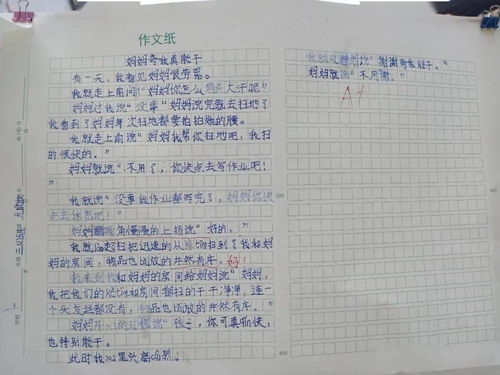 作文纸
妈妈夸我真能干
有一天，我看见妈妈很劳累。
我就走上前问："妈妈你怎么 大汗呢"
妈妈对我说"没事"妈妈说完就去扫地了
我看到了妈妈每次扫地都要拍拍她的腰。
我就走上前说"妈妈我帮你扫地吧，我扫
的很快的。"
妈妈就说"不用了，你快点去写作业吧！
"
我就说"没事我作业都写完了，妈妈你快
点去休息吧！"
妈妈嘴角慢慢的上扬说"好的。"
我就 起扫把迅速的从 扫到了我和妈
妈的房间，物品也 放的井然有序。好！
我来到我和妈妈的房间给妈妈说"妈妈，
我把我们的 和房间都扫的干干净净，连一
个头发丝都没有，物品也 放的井然有序。"
妈妈开心的 说"孩子，你可真 快，
也特别能干。
此时我心里
我就对妈妈说"谢谢 能干。"
妈妈就说"不用谢。"
A+